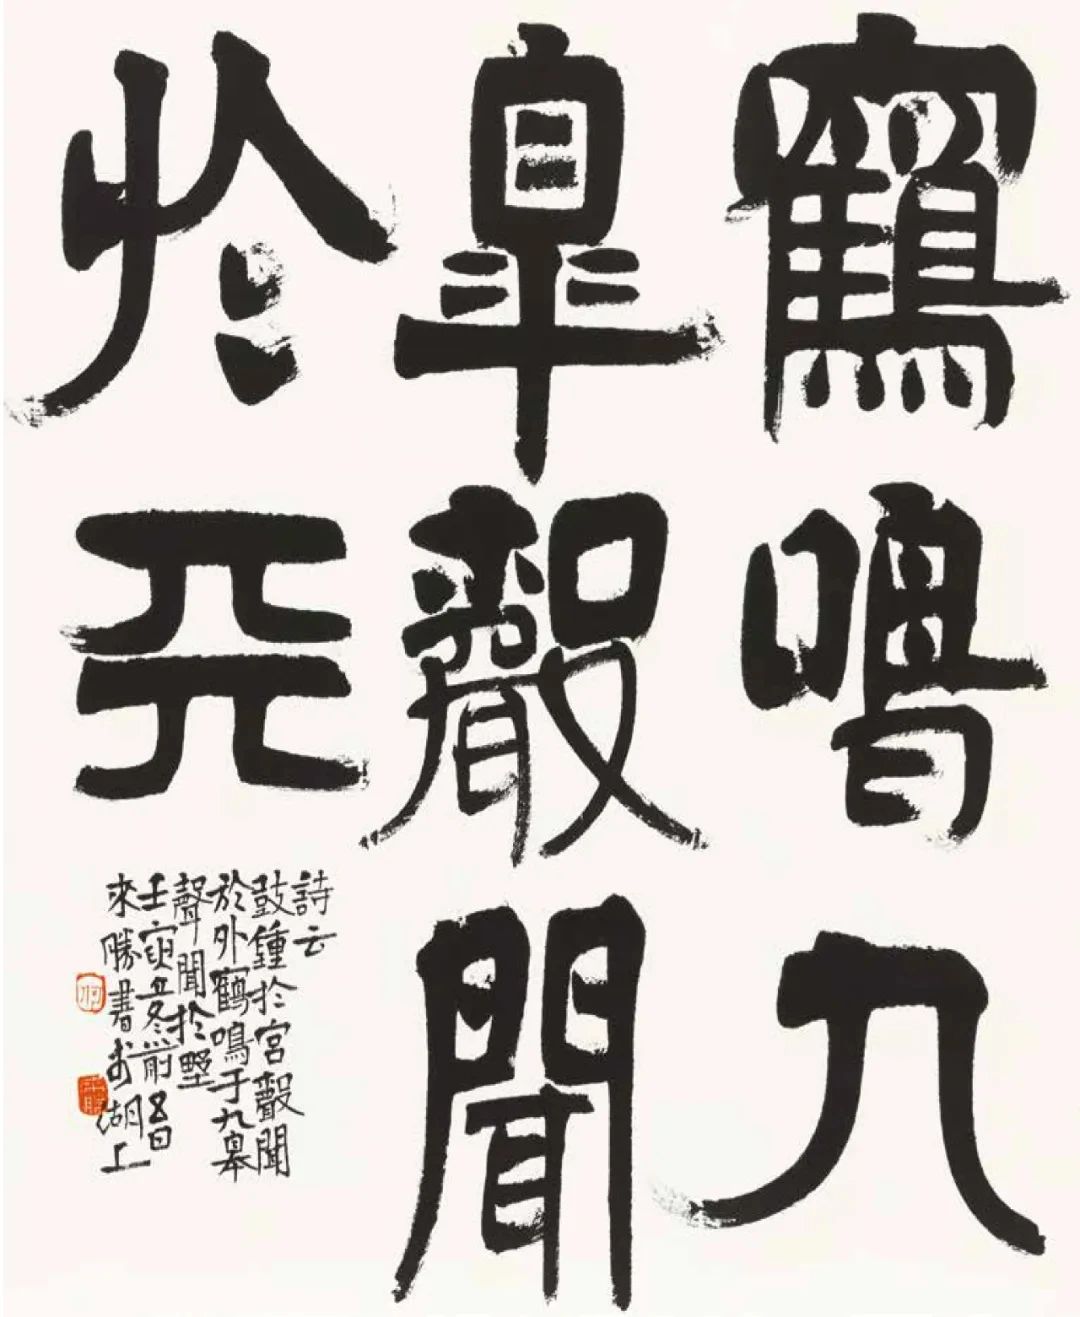 鶴鳴九
皋聲聞
於天
詩云
鼓鍾於宮聲聞
於外鶴鳴于九皋
聲聞於野
壬寅立冬前五日
來勝書於湖上